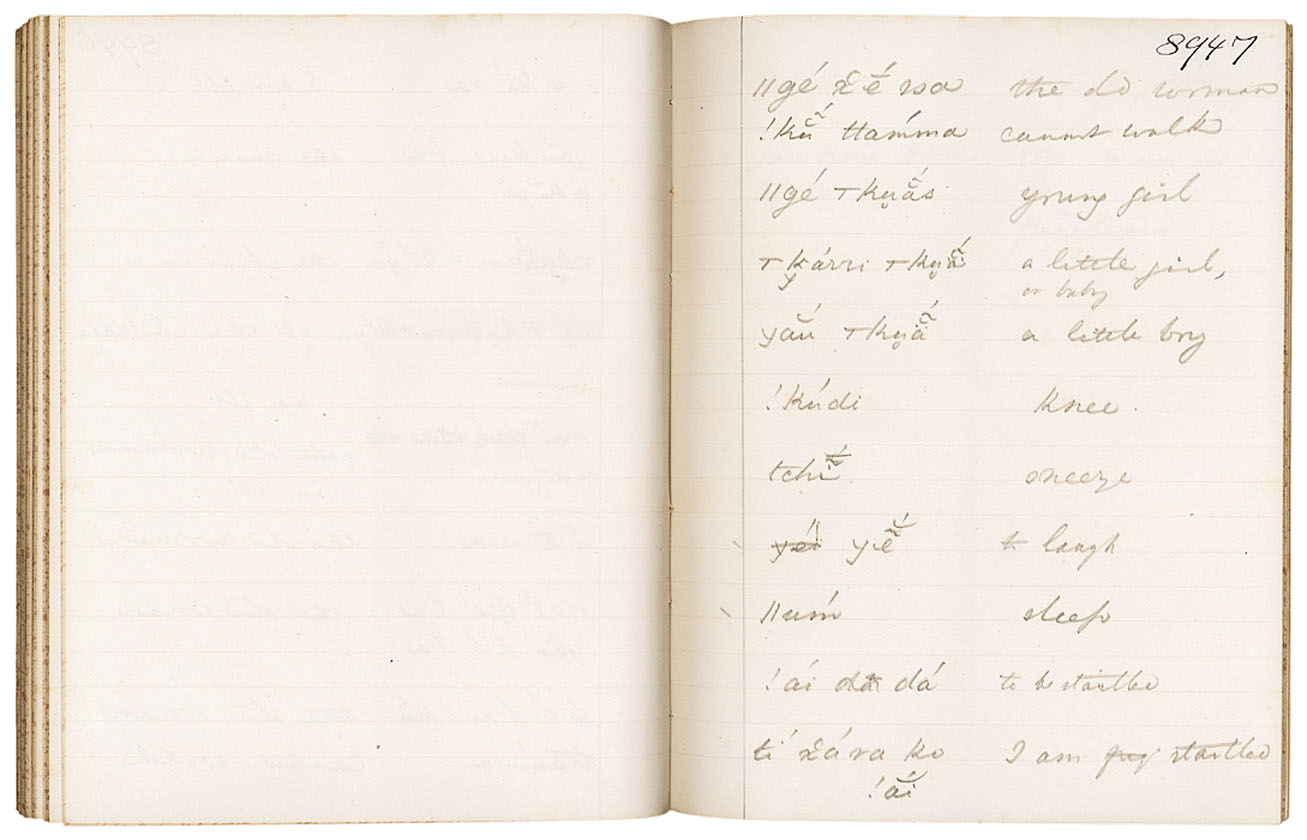 8947
||gé ž é̆ rsa the old woman
!kŭ́̃ ttaḿma cannot walk
||gé ⊤kṷắs young girl
⊤ḵárri ⊤kṷắ a little girl,
or baby
yắu ⊤kṷấ a little boy
!kúdi knee.
tchí̆ sneeze
yĕ́ to laugh
||uḿ sleep
!ái dá to be startled
tí žára ko I am startled
!ắi